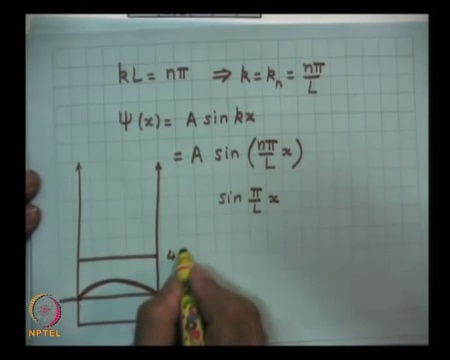 kL = nπ ⇒ k = kₙ = nπ/L
Ψ(x) = A sin kx
= A sin (nπ/L x)
sin π/L x
4
NPTEL